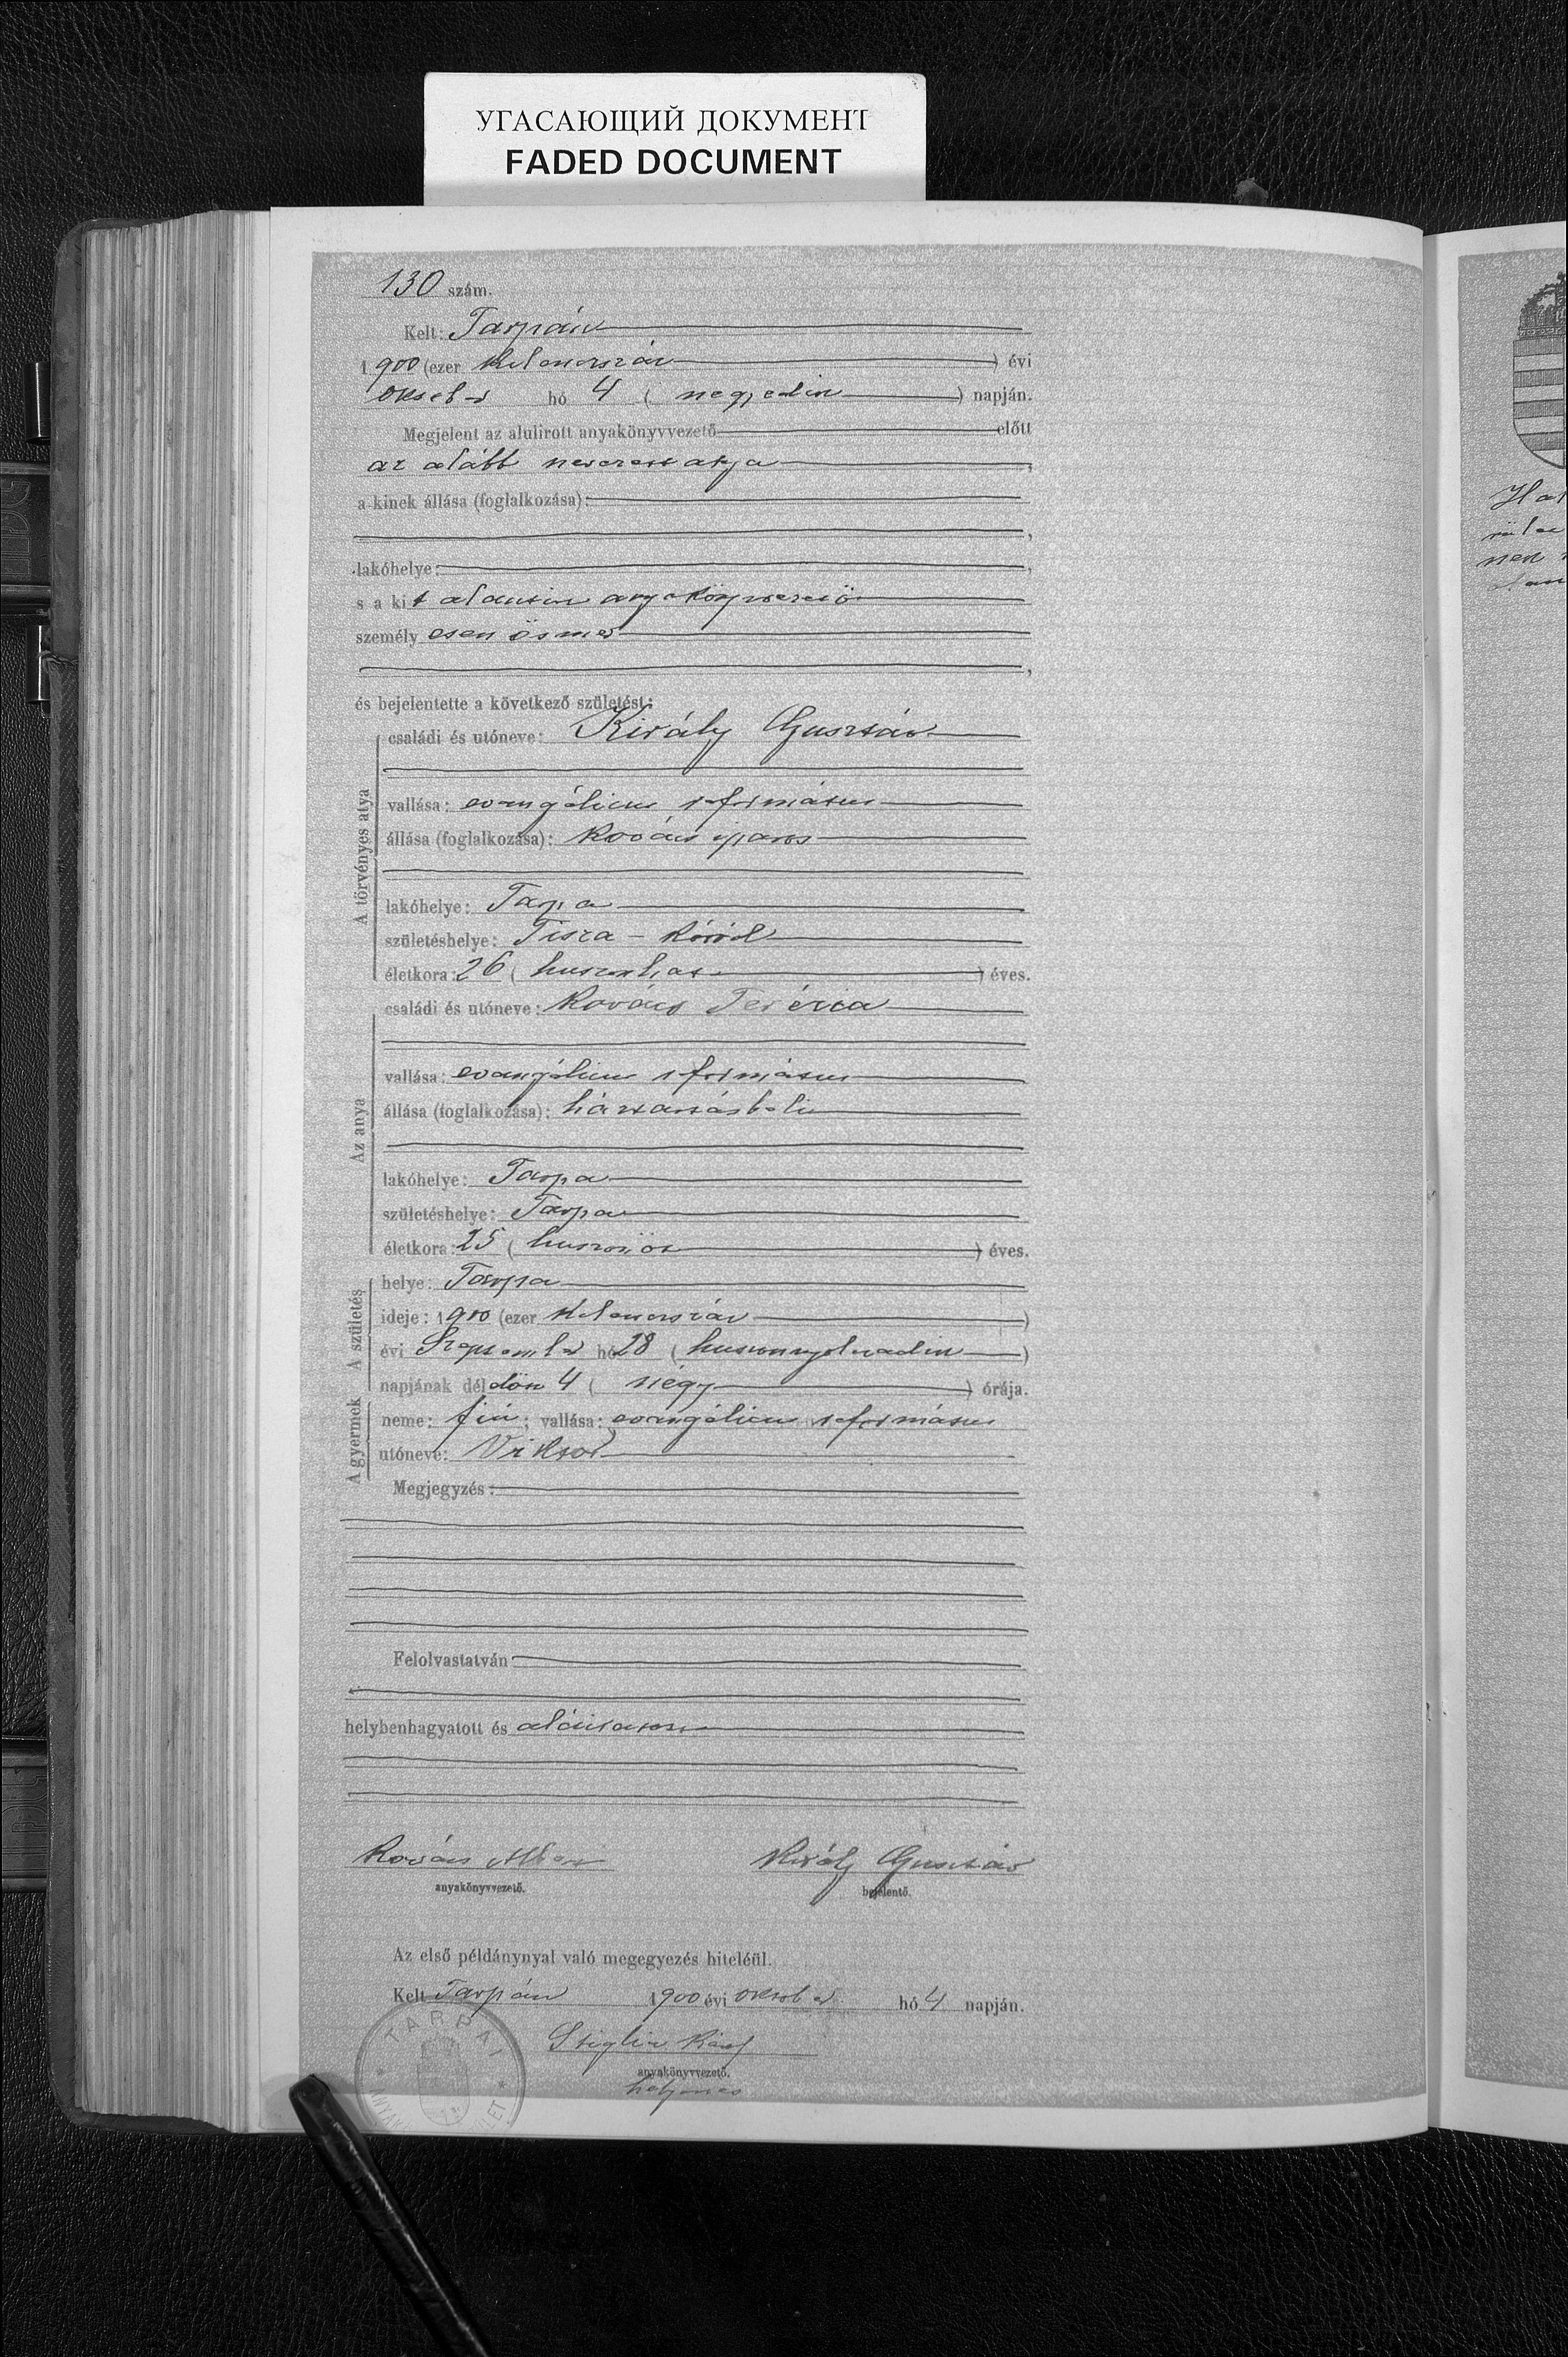 УГАСАЮЩИЙ ДОКУМЕНТ
FADED DOCUMENT
130 szám.
Kelt: Tarpán
1900 (ezer kilencszáz) évi
október hó 4 (negyedik) napján.
Megjelent az alulirott anyakönyvvezető előtt
az alább nevezett atya,
a kinek állása (foglalkozása):
lakóhelye:
s a kit alantirt anyakönyvvezető
személyesen ösmer
és bejelentette a következő születést:
A törvényes atya
családi és utóneve: Király Gusztáv
vallása: evangélicus református
állása (foglalkozása): kovács iparos
lakóhelye: Tarpa
születéshelye: Tisza-
életkora: 26 (huszonhat) éves.
Az anya
családi és utóneve: Kovács Terézia
vallása: evangélicus református
állása (foglalkozása): háztartásbeli
lakóhelye: Tarpa
születéshelye: Tarpa
életkora: 25 (huszonöt) éves.
A születés
helye: Tarpa
ideje: 1900 (ezer kilencszáz)
évi Szeptember hó 28 (huszonnyolcadik)
napjának délelőtt 4 (négy) órája.
A gyermek
neme: fiú; vallása: evangélicus református
utóneve: Viktor
Megjegyzés:
Felolvastatván
helybenhagyatott és aláíratott
Kovács Király Gusztáv
anyakönyvvezető. bejelentő.
Az első példánynyal való megegyezés hiteléül.
Kelt Tarpán 1900 évi október hó 4 napján.
anyakönyvvezető.
helyettes
TARPAI